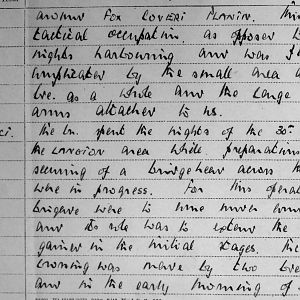 around FOX COVERT PLANTN. This
tactical occupation as opposed to
nights harbouring and was
emphasized by the small area
Bde. as a whole and the large
arms attached to us.
The Bn. spent the nights of the 30th
the area while preparations
securing of a bridgehead across the
were in progress. For this operation
brigade were to come under
and its role was to extend the
gained in the initial stages. The
crossing was made by two Bdes
and in the early morning of